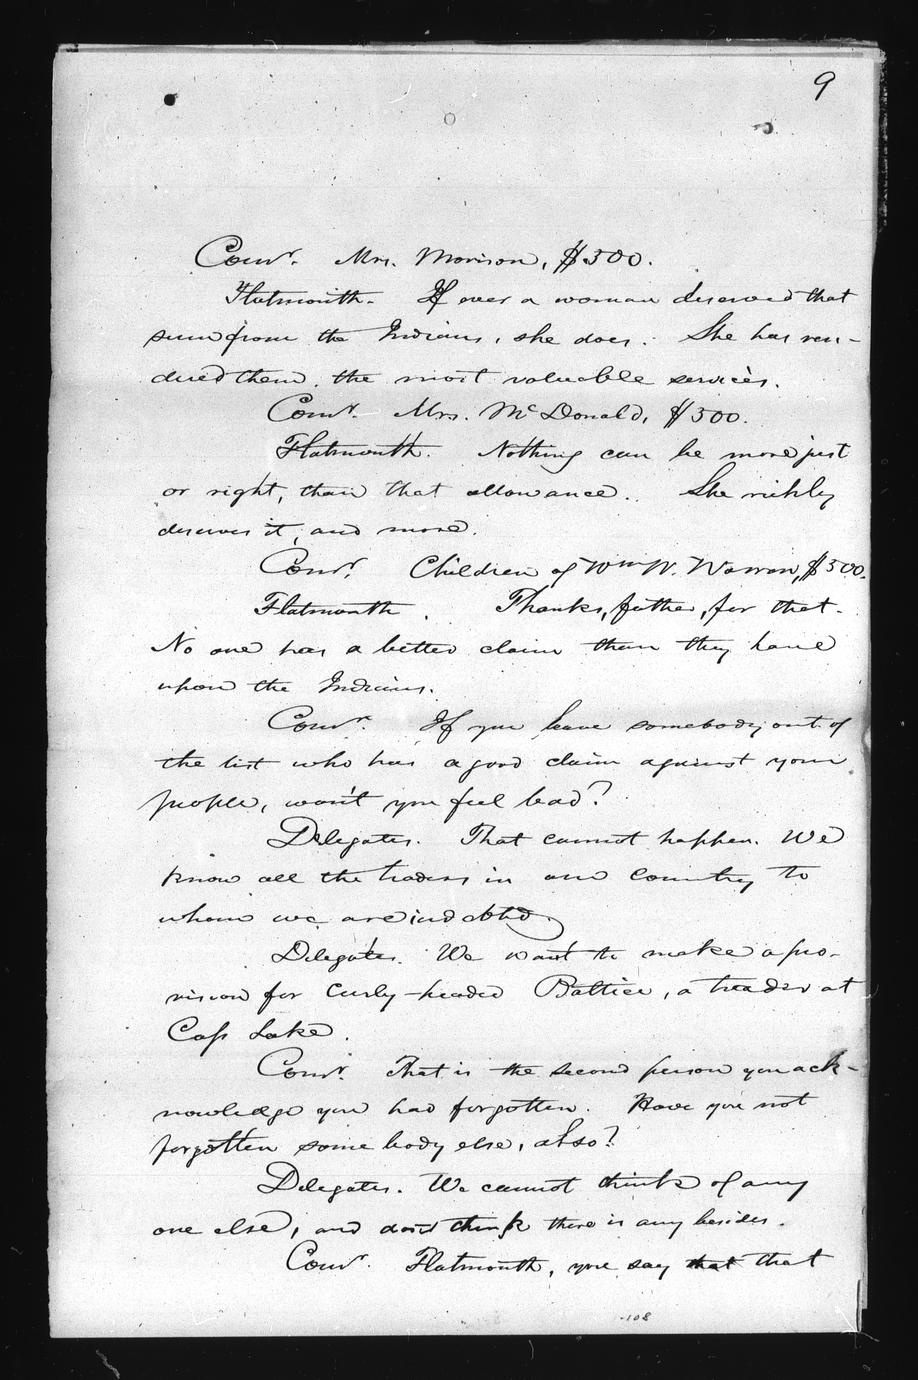 9
Comr. Mrs. Morison, $500.
Flatmouth. If ever a woman deserved that
sum from the Indians, she does. She has ren-
dered them, the most valuable services.
Comr. Mrs. McDonald, $500.
Flatmouth. Nothing can be more just
or right, than that allowance. She richly
deserves it, and more.
Comr. Children of Wm W. Warren, $500.
Flatmouth. Thanks, father, for that.
No one has a better claim than they have
upon the Indians.
Comr. If you leave somebody out of
the list who has a good claim against your
people, won't you feel bad?
Delegates. That cannot happen. We
know all the traders in our country to
whom we are indebted.
Delegates. We want to make a pro-
vision for Curly-headed Battice, a trader at
Cass Lake.
Comr. That is the second person you ack-
nowledge you had forgotten. Have you not
forgotten some body else, also?
Delegates. We cannot think of any
one else, and don't think there is any besides.
Comr. Flatmouth, you say that that
108